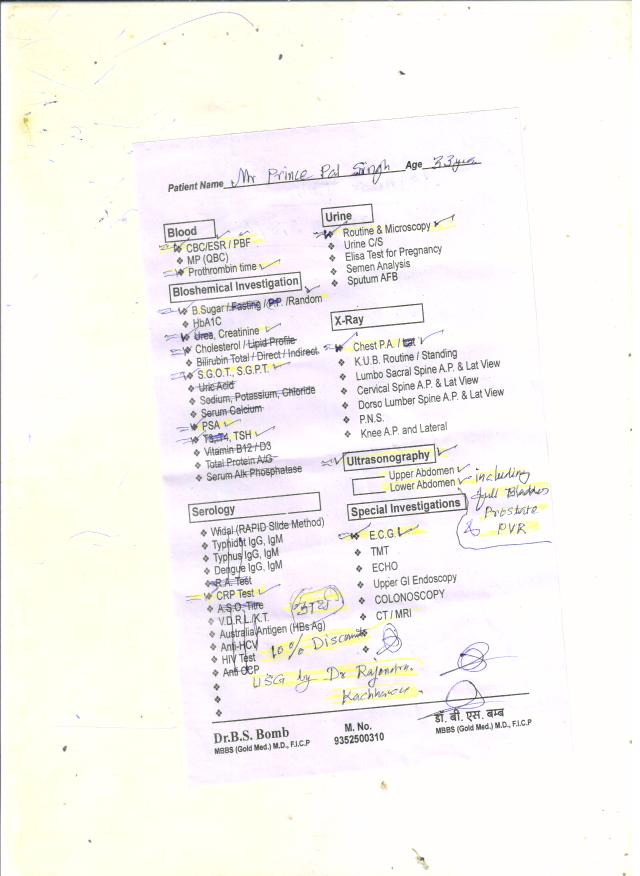 Patient Name Mr Prince Pal Singh Age 33 yrs
Blood
CBC/ESR / PBF
MP (QBC)
Prothrombin time
Bioshemical Investigation
B.Sugar / Fasting / P.P. /Random
HbA1C
Urea, Creatinine
Cholesterol / Lipid Profile
Bilirubin Total / Direct / Indirect
S.G.O.T., S.G.P.T.
Uric Acid
Sodium, Potassium, Chloride
Serum Calcium
PSA
T3, T4, TSH
Vitamin B12 / D3
Total Protein A/G
Serum Alk Phosphatase
Serology
Widal (RAPID Slide Method)
Typhidot IgG, IgM
Typhus IgG, IgM
Dengue IgG, IgM
R.A. Test
CRP Test
A.S.O. Titre
V.D.R.L./K.T.
Australia Antigen (HBs Ag)
Anti-HCV
HIV Test
Anti CCP
10% Discount
USG by Dr Rajendra
Urine
Routine & Microscopy
Urine C/S
Elisa Test for Pregnancy
Semen Analysis
Sputum AFB
X-Ray
Chest P.A. /
K.U.B. Routine / Standing
Lumbo Sacral Spine A.P. & Lat View
Cervical Spine A.P. & Lat View
Dorso Lumber Spine A.P. & Lat View
P.N.S.
Knee A.P. and Lateral
Ultrasonography
Upper Abdomen
Lower Abdomen
including
full Bladder
Prostate
& PVR
Special Investigations
E.C.G.
TMT
ECHO
Upper GI Endoscopy
COLONOSCOPY
CT / MRI
Dr.B.S. Bomb
MBBS (Gold Med.) M.D., F.I.C.P
M. No.
9352500310
डॉ. बी. एस. बम्ब
MBBS (Gold Med.) M.D., F.I.C.P